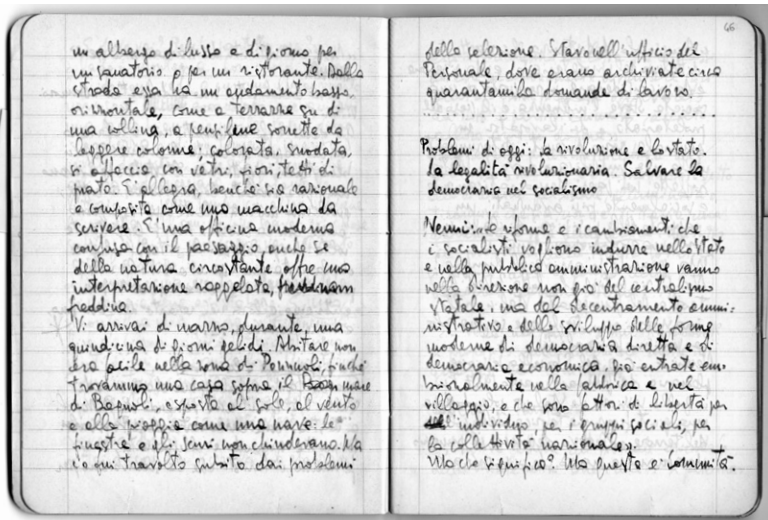 un albergo di lusso e di giorno per
un sanatorio o per un ristorante. Dalla
strada essa ha un andamento basso,
orizzontale, come a terrazze su di
una collina, a pensiline sorrette da
leggere colonne; colorata, snodata,
si affaccia con vetri, fiori, tetti di
prato. E' allegra, benché sia razionale
e composita come una macchina da
scrivere. E' una officina moderna
confusa con il paesaggio, anche se
della natura circostante offre una
interpretazione raggelata,
freddina.
Vi arrivai di marzo, durante una
quindicina di giorni gelidi. Abitare non
era facile nella zona di Pozzuoli, finché
trovammo una casa sopra il mare
di Bagnoli, esposta al sole, al vento
e alla pioggia come una nave: le
finestre e gli scuri non chiudevano. Ma
io fui travolto subito dai problemi
66
della selezione. Stavo nell'ufficio del
Personale, dove erano archiviate circa
quarantamila domande di lavoro.
. . . . . . . . . . . . . . . . . . . . . . . . . . . .
Problemi di oggi: la rivoluzione e lo stato.
La legalità rivoluzionaria. Salvare la
democrazia nel socialismo
Nenni: le riforme e i cambiamenti che
i socialisti vogliono indurre nello Stato
e nella pubblica amministrazione vanno
nella direzione non già del centralismo
statale, ma del decentramento ammi-
nistrativo e dello sviluppo delle forme
moderne di democrazia diretta e di
democrazia economica, già entrate em-
brionalmente nella fabbrica e nel
villaggio, e che sono fattori di libertà per
individuo, per i gruppi sociali, per
la collettività nazionale».
Ma che significa? Ma questa è Comunità.